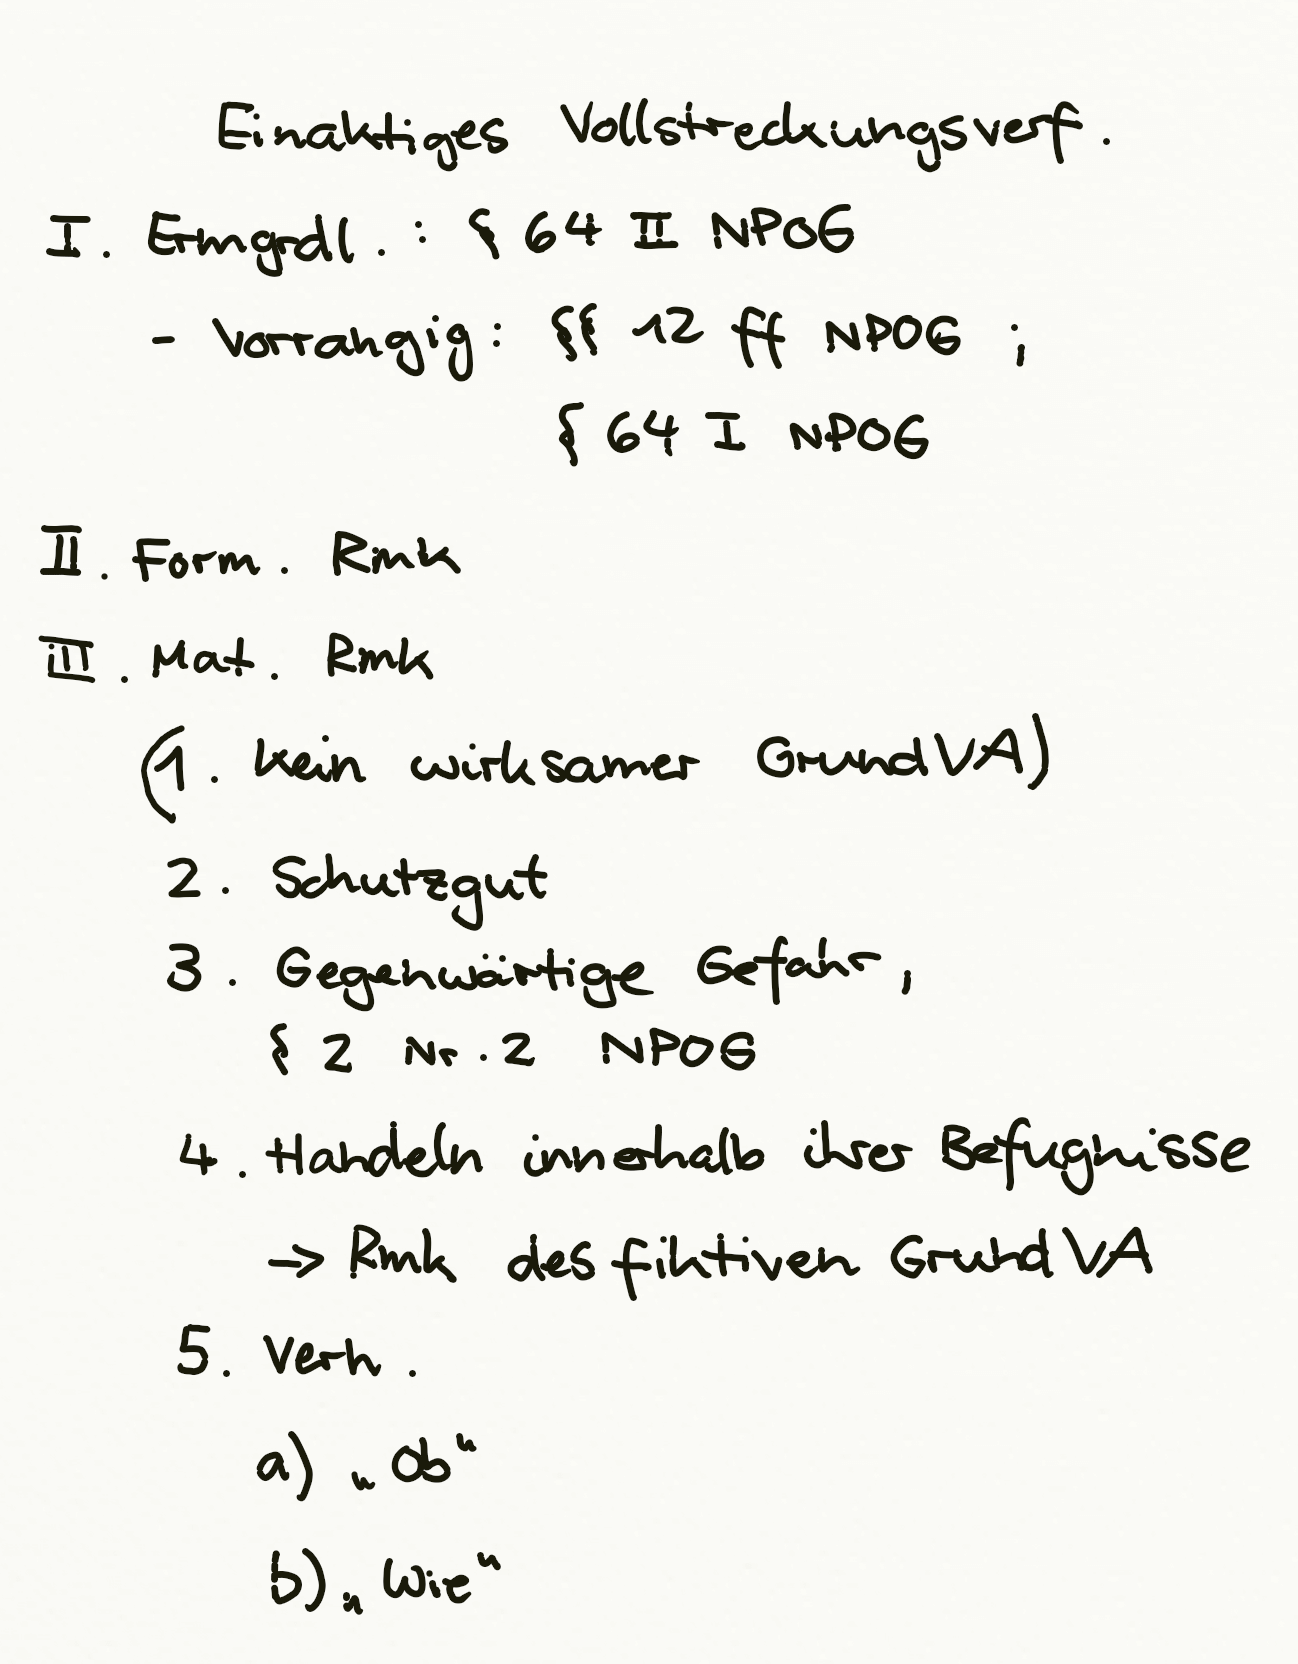 Einaktiges Vollstreckungsverf.
I. Ermgrdl.: § 64 II NPOG
- Vorrangig: §§ 12 ff NPOG ;
§ 64 I NPOG
II. Form. Rmk
III. Mat. Rmk
(1. kein wirksamer GrundVA)
2. Schutzgut
3. Gegenwärtige Gefahr,
§ 2 Nr. 2 NPOG
4. Handeln innerhalb ihrer Befugnisse
→ Rmk des fiktiven GrundVA
5. Verh.
a) „Ob"
b) „Wie"